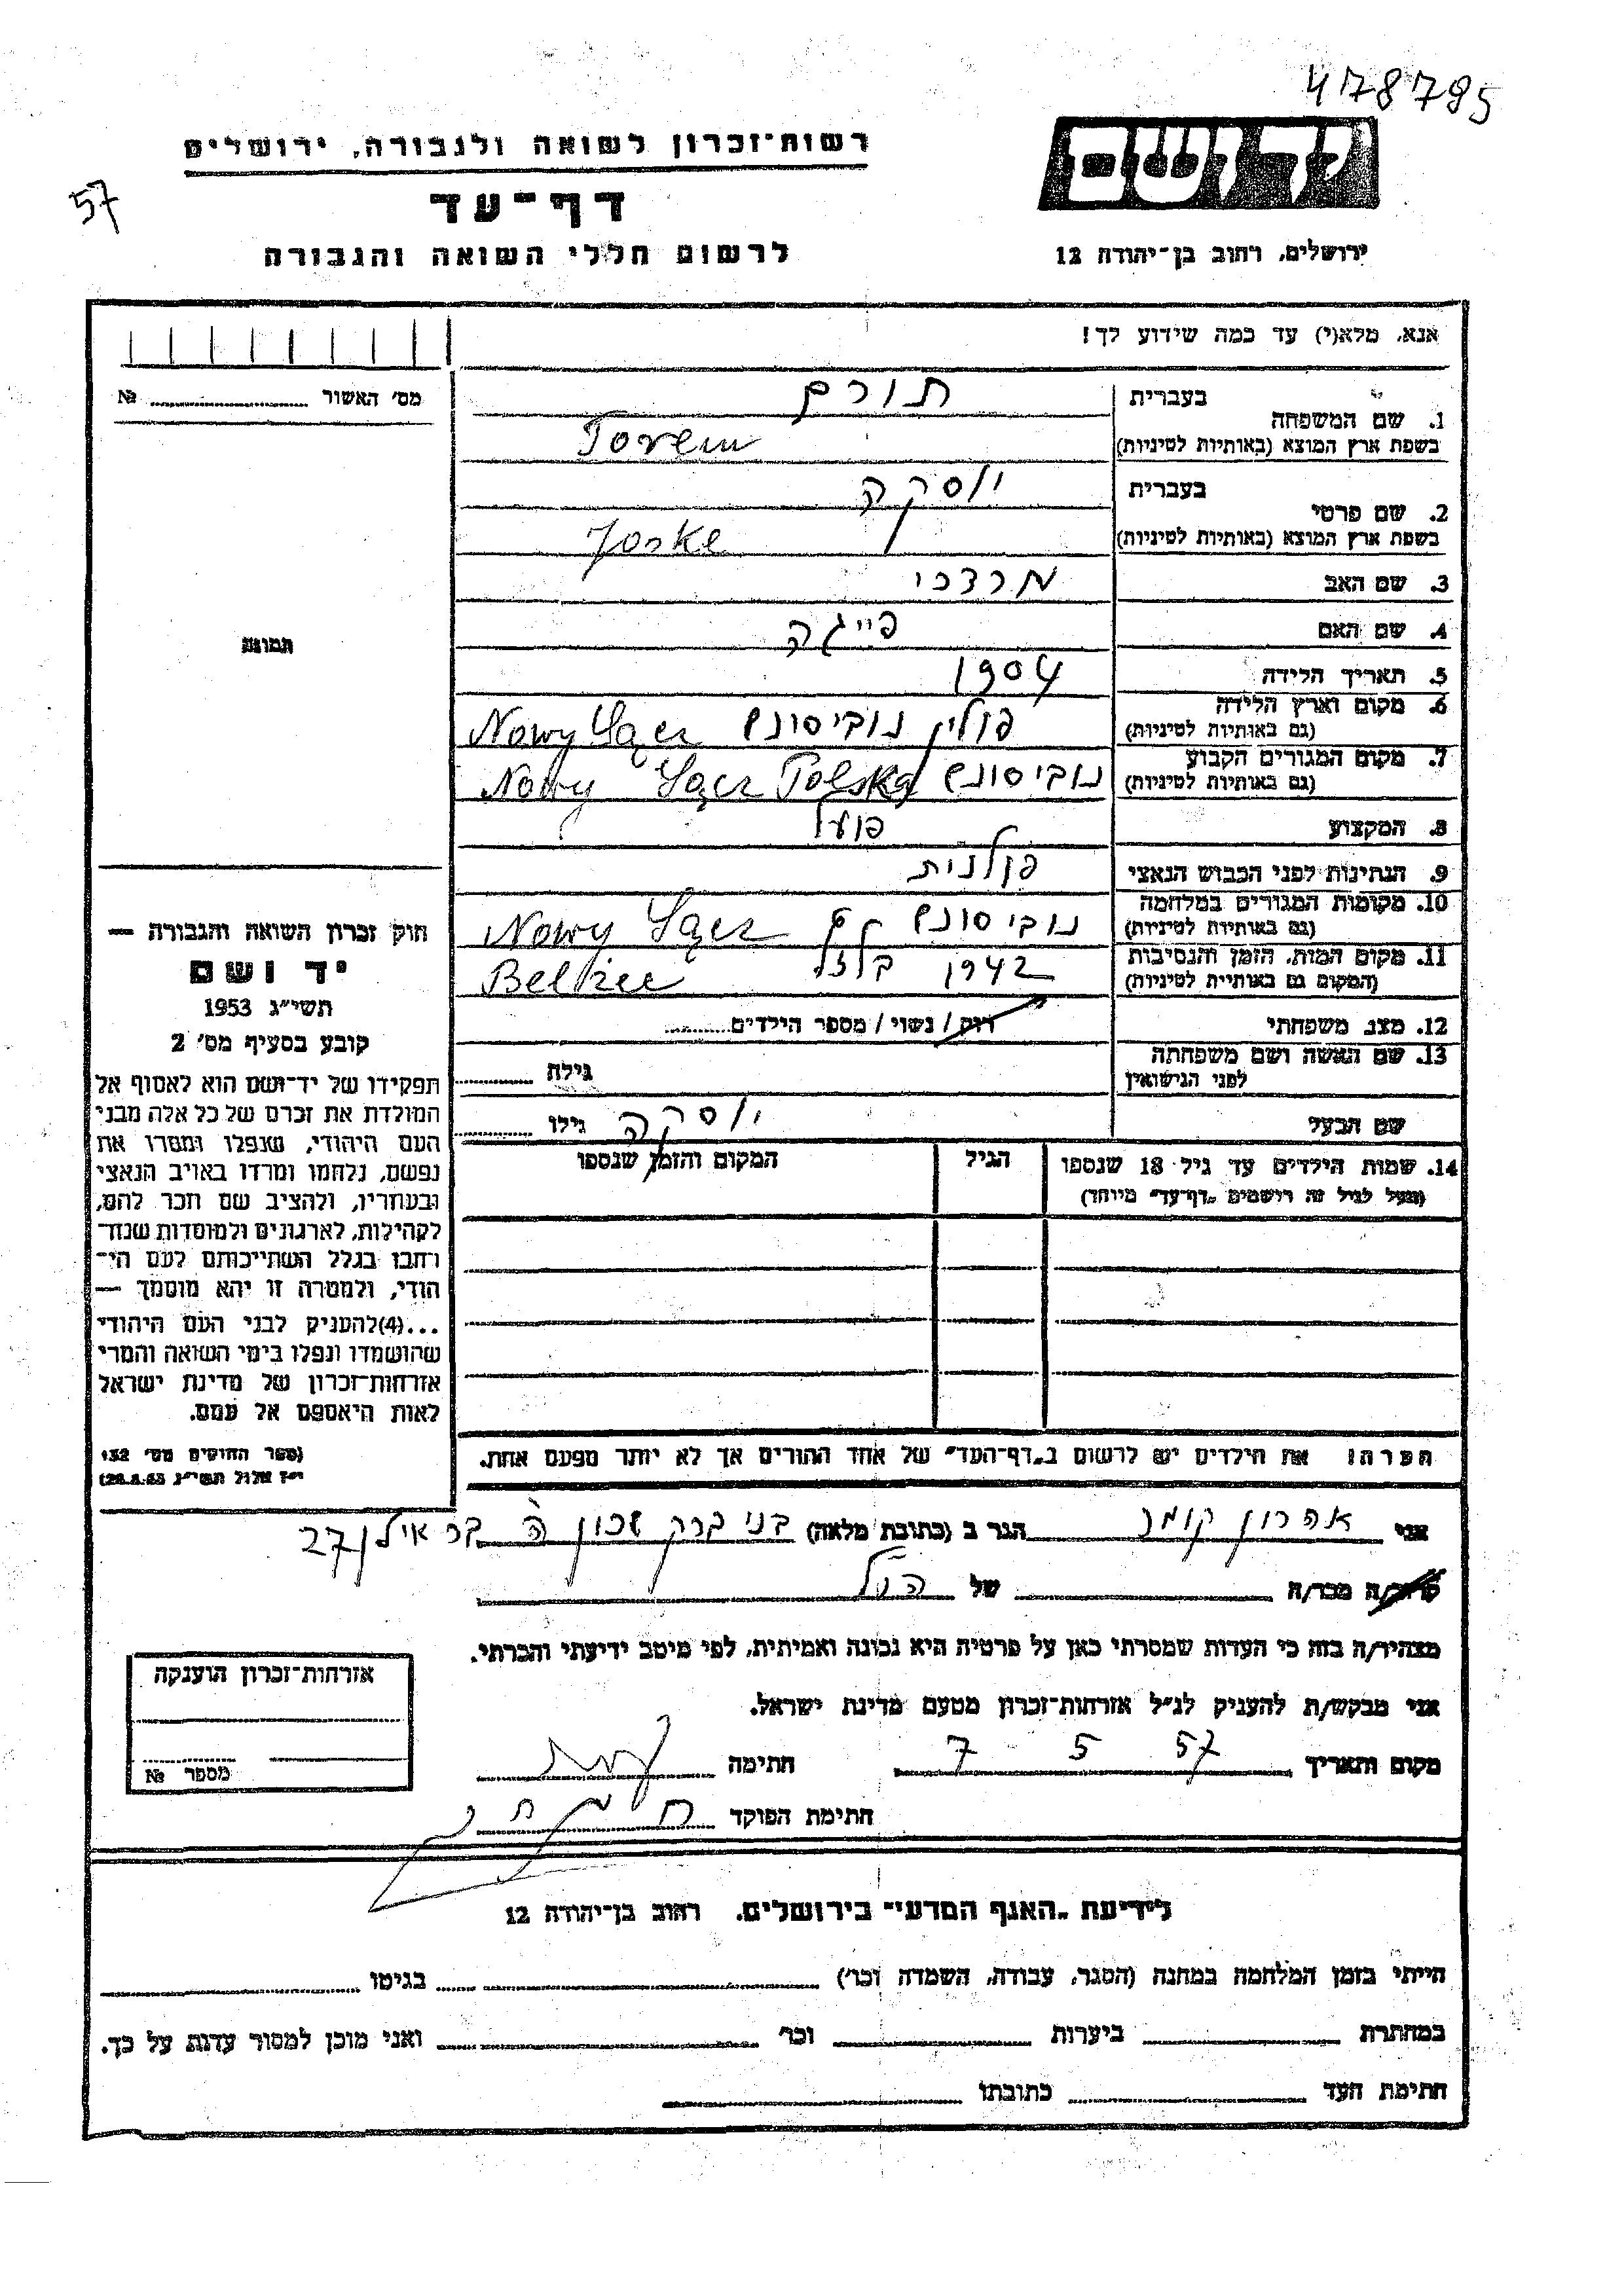 478795
יד ושם
ירושלים, רחוב בן־יהודה 12
רשות־זכרון לשואה ולגבורה, ירושלים
57
דף־עד
לרשום חללי השואה והגבורה
אנא, מלא(י) עד כמה שידוע לך!
מס׳ האשור № 
1. שם המשפחה בעברית תורם
בשפת ארץ המוצא (באותיות לטיניות) Torem
2. שם פרטי בעברית יוסקה
בשפת ארץ המוצא (באותיות לטיניות) Joske
3. שם האב מרדכי
4. שם האם פייגה
תמונה
5. תאריך הלידה 1904
6. מקום וארץ הלידה (גם באותיות לטיניות) פולין נובי סונץ Nowy Sącz
7. מקום המגורים הקבוע (גם באותיות לטיניות) נובי סונץ Nowy Sącz Polska
8. המקצוע פועל
9. הנתינות לפני הכבוש הנאצי פולנית
10. מקומות המגורים במלחמה (גם באותיות לטיניות) נובי סונץ Nowy Sącz
11. מקום המות, הזמן והנסיבות (המקום גם באותיות לטיניות) 1942 Belżec
12. מצב משפחתי רווק / נשוי / מספר הילדים
13. שם האשה ושם משפחתה לפני הנישואין גילה
שם הבעל יוסקה גילו
14. שמות הילדים עד גיל 18 שנספו הגיל המקום והזמן שנספו
(מעל לגיל זה רושמים „דף־עד״ מיוחד)
חוק זכרון השואה והגבורה —
יד ושם
תשי״ג 1953
קובע בסעיף מס׳ 2
תפקידו של יד־ושם הוא לאסוף אל
המולדת את זכרם של כל אלה מבני
העם היהודי, שנפלו ומסרו את
נפשם, נלחמו ומרדו באויב הנאצי
ובעוזריו, ולהציב שם וזכר להם,
לקהילות, לארגונים ולמוסדות שנח־
רבו בגלל השתייכותם לעם הי־
הודי, ולמטרה זו יהא מוסמך —
...(4) להעניק לבני העם היהודי
שהושמדו ונפלו בימי השואה והמרי
אזרחות־זכרון של מדינת ישראל
לאות היאספם אל עמם.
(ספר החוקים מס׳ 132
י״ז אלול תשי״ג 28.8.53)
הערה: את הילדים יש לרשום ב„דף־העד״ של אחד ההורים אך לא יותר מפעם אחת.
אני אהרון הגר ב (כתובת מלאה) בני ברק שכון ה׳ בר אילן 27
קרוב/ה מכר/ה של הנ״ל
מצהיר/ה בזה כי העדות שמסרתי כאן על פרטיה היא נכונה ואמיתית, לפי מיטב ידיעתי והכרתי.
אני מבקש/ת להעניק לנ״ל אזרחות־זכרון מטעם מדינת ישראל.
מקום ותאריך 7 5 57 חתימה
חתימת הפוקד
אזרחות־זכרון הוענקה
מספר №
לידיעת „האגף המדעי״ בירושלים, רחוב בן־יהודה 12
הייתי בזמן המלחמה במחנה (הסגר, עבודה, השמדה וכו׳) בגיטו
במחתרת ביערות וכו׳ ואני מוכן למסור עדות על כך.
חתימת העד כתובתו